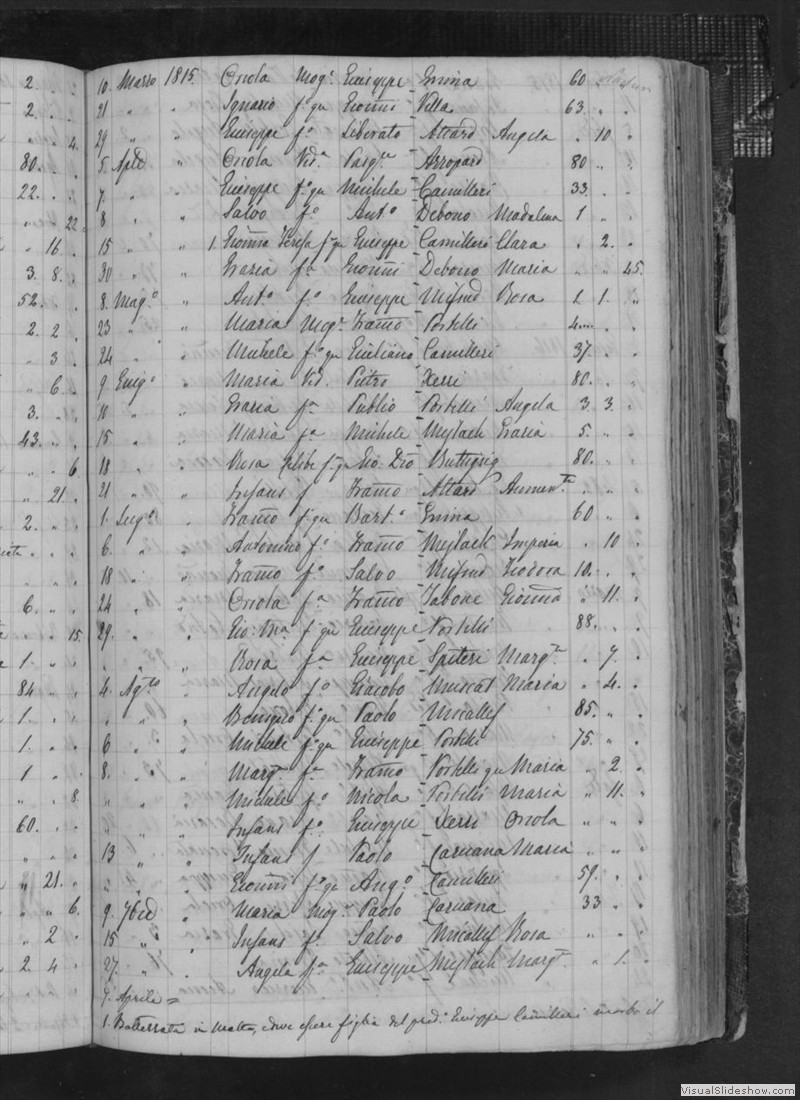 10 Marzo 1815 Orsola Mogᵉ Giuseppe Grima 60
21 " " Ignazio fº qu Giovñi Villa 63 " "
29 " " Giuseppe fº Liberato Attard Angela " 10 "
5 Aplᵉ " Orsola Vidª Pasqˡᵉ Azzopard 80 " "
7 " " Giuseppe fº qu Michele Camilleri 33 " "
8 " " Salvo fº Antº Debono Madalena 1 " "
15 " " 1. Giovña Teresa fª qu Giuseppe Camilleri Clara " 2. "
30 " " Grazia fª Giovñi Debono Maria " " 45.
8. Magº " Antº fº Giuseppe Mifsud Rosa 1. 1. "
23 " " Maria Mogᵉ Franco Portelli 4... " "
24 " " Michele fº qu Giuliano Camilleri 37. " "
9 Giugº " Maria Vidª Pietro Xerri 80. " "
10 " " Grazia fª Publio Portelli Angela 3. 3. "
15 " " Maria fª Michele Mejlach Grazia 5. " "
18 " " Rosa fª qu Gio. Buttigieg 80. " "
21 " " Infans f Franco Attard " " "
1. Lugº " Franco fº qu Bartº Grima 60 " "
6. " " Antonino fº Franco Mejlach Imperia " 10 "
18 " " Franco fº Salvo Mifsud Teodora 10. " "
24 " " Orsola fª Franco Tabone Giovña " 11. "
29. " " Gio: Mª fº qu Giuseppe Portelli 88. " "
" " " Rosa fª Giuseppe Spiteri Margᵗª " 7. "
4. Agᵗº " Angelo fº Giacobo Muscat Maria " 4. "
" " " Benigno fº qu Paolo Micallef 85. " "
6 " " Michele fº qu Giuseppe Portelli 75. " "
8. " " Margᵗª fª Franco Portelli qu Maria " 2. "
" " " Michele fº Nicola Portelli Maria " 11. "
" " " Infans fº Giuseppe Xerri Orsola " "
13 " " Infans f Paolo Caruana Maria " "
" " " Giovñi fº qu Angº Camilleri 59. " "
9. 7bre " Maria Mogᵉ Paolo Caruana 33 " "
15 " " Infans fº Salvo Micallef Rosa " " "
27. " " Angela fª Giuseppe Mejlach Margᵗª " 1. "
7. Aprile =
1. in Malta, deve essere figlia del pred.º Giuseppe Camilleri morto il
2. " "
2. " "
" " 4.
80. " "
22. " "
" " 22.
" 16. "
3. 8. "
52. " "
2. 2 "
" 3. "
" 6. "
3. " "
43. " "
" " 6.
" 21. "
2. " "
6. " "
" " 15.
1. " "
84 " "
1. " "
1. " "
1 " "
" " 8.
60. " "
" 21. "
" " 6.
" 2 "
2. 4 "
VisualSlideshow.com